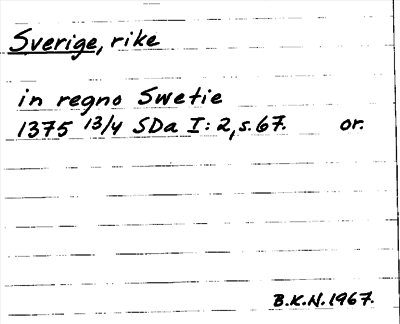 Sverige, rike
in regno Swetie
1375 13/4 SDa I:2, s. 67. or.
B.K.N. 1967.